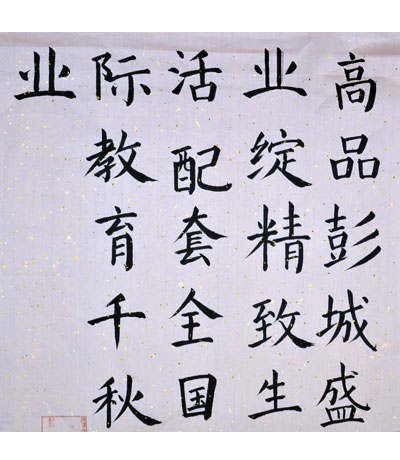 高品彭城盛
业绽精致生
活配套全国
际教育千秋
业